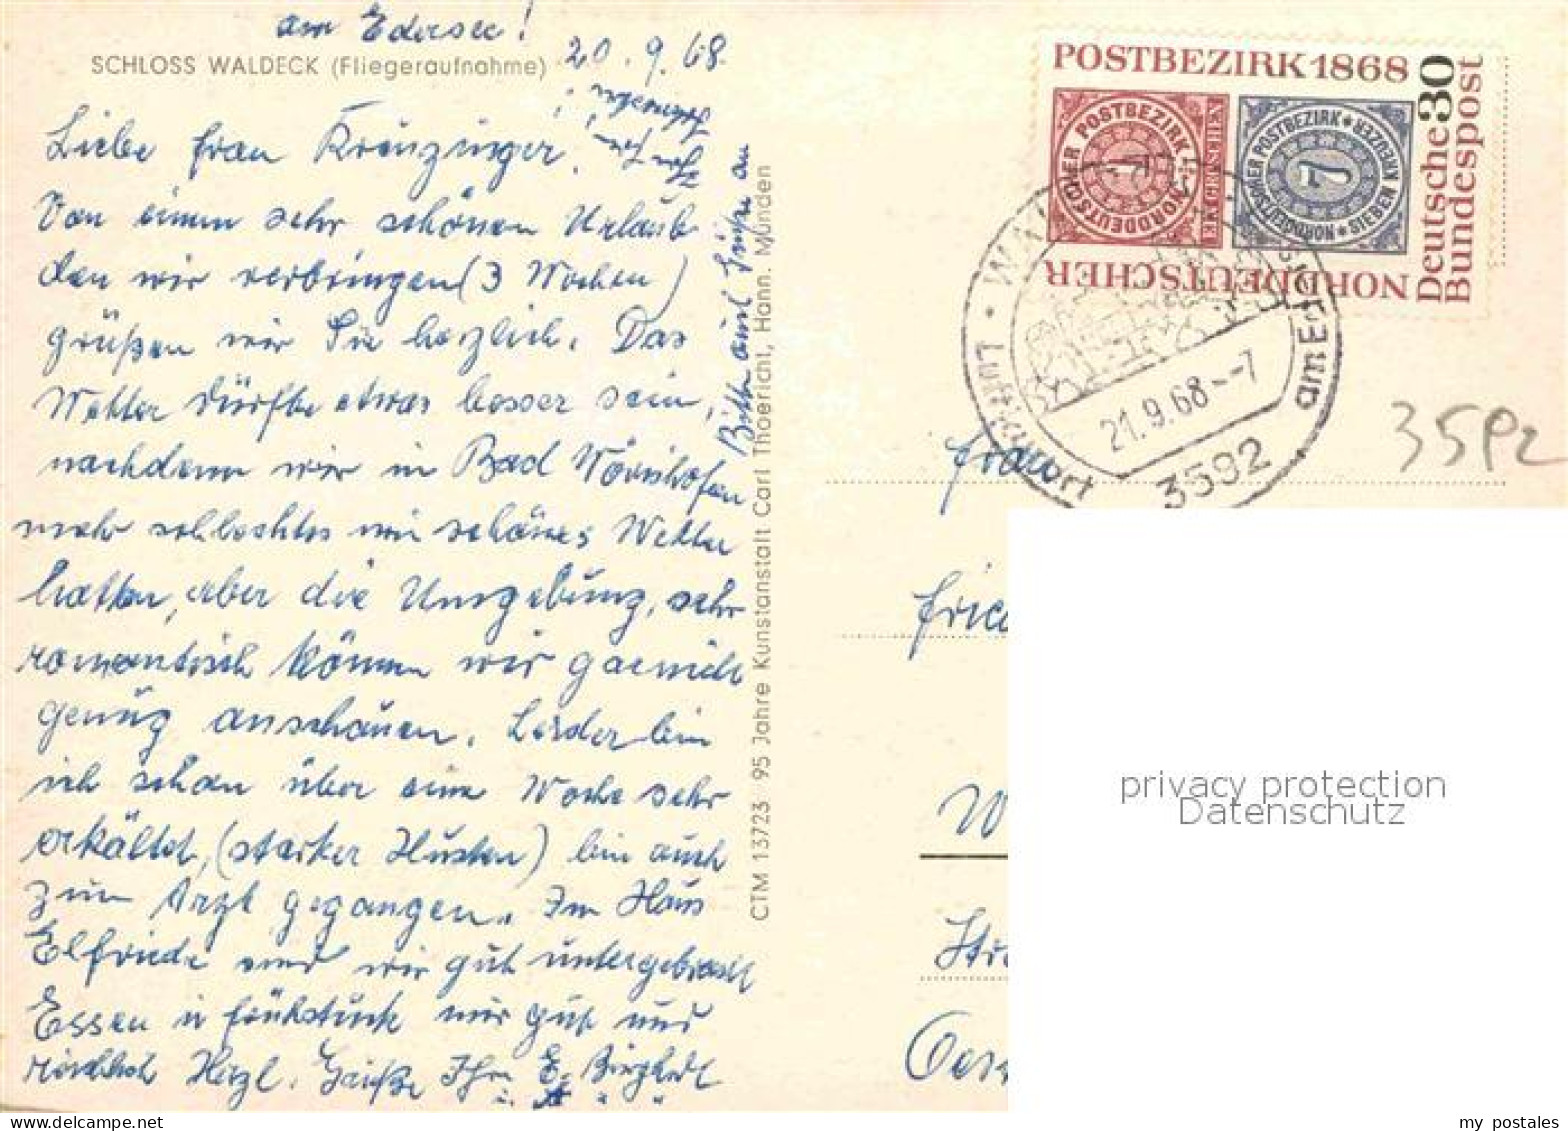 am Edersee!
SCHLOSS WALDECK (Fliegeraufnahme)
20.9.68
Liebe Frau Kreuzinger!
Von einem sehr schönen Urlaub
den wir verbringen (3 Wochen)
grüßen wir Sie herzlich. Das
Wetter dürfte etwas besser sein,
nachdem wir in Bad Wörishofen
mehr schlechtes wie schönes Wetter
hatten, aber die Umgebung, sehr
romantisch können wir garnicht
genug anschauen. Leider bin
ich schon über eine Woche sehr
erkältet, (starker Husten) bin auch
zum Arzt gegangen. Im Haus
Elfriede sind wir gut untergebracht
Essen u Frühstück sehr gut und
reichlich Herzl. Grüße Ihre E.
Bitte auch Grüße an
CTM 13723 95 Jahre Kunstanstalt Carl Thoericht, Hann. Münden
POSTBEZIRK 1868
NORDDEUTSCHER
Deutsche
Bundespost
30
NORDDEUTSCHER POSTBEZIRK
1
NORDDEUTSCHER POSTBEZIRK
7
SIEBEN KREUZER
Luftkurort
am Edersee
21.9.68--7
3592
35P2
Frau
Fried
W
Str
Oes
privacy protection
Datenschutz
my postales